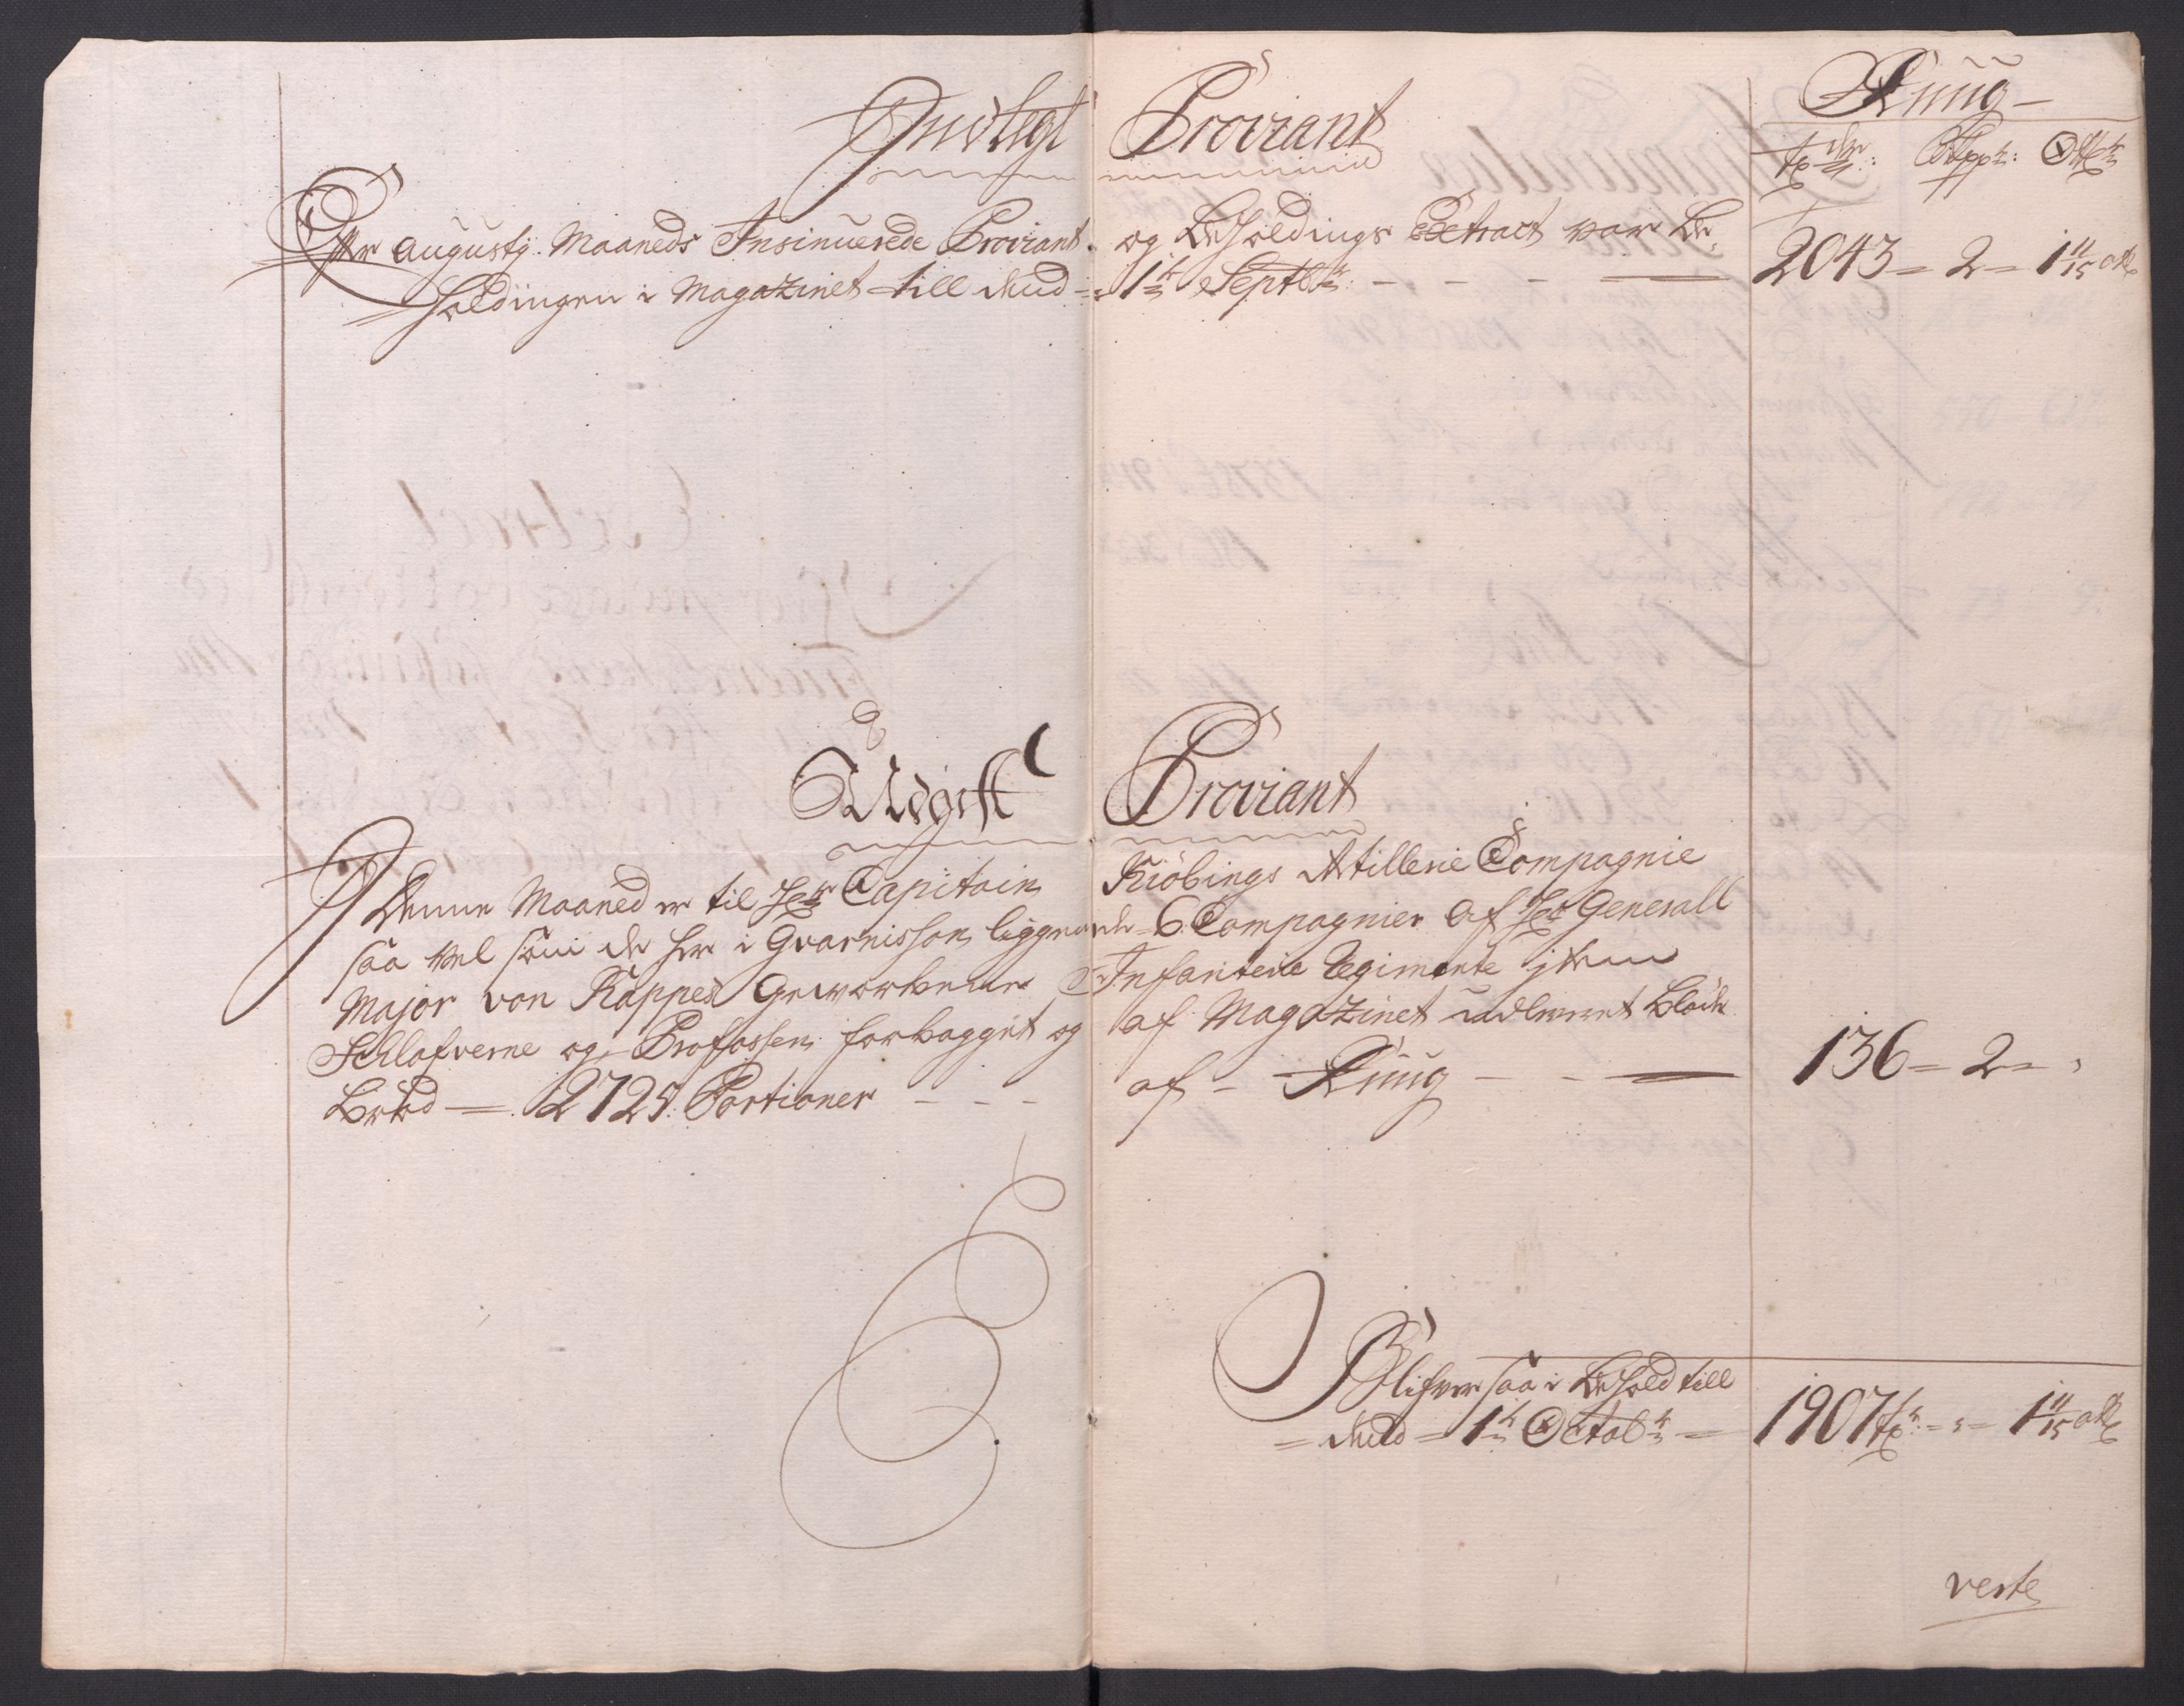 Indlegt Proviant
Rúúg
Tøndr: Skpp: Ottkr
Efter Augustÿ Maaneds Insinuerede Proviant og Beholdings Extract var Be-
holdingen i Magazinet till dend 1te Septbr: - - - 2043 = 2 = 1 11/15 ottk
Udgift Proviant
J Denne Maaned er til Hr Capitain Kiöbings Artillerie Compagnie
saa vel som de her i Gvarnisson liggende 6 Compagnier af Hr General
Major von Kappes Geworbene Infanterie Regimente jtem
Schlafverne og Profossen forbagget og af Magazinet udleveret Bløde
Brød = 2725: Portioner - - - af - Rúúg - - 136 = 2 =
Blifver saa i Behold till
= dend = 1te Octobr = 1907 tr: = 1 11/15 ottk
verte